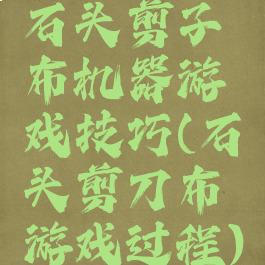 石头剪子
布机器游
戏技巧(石
头剪刀布
游戏过程)